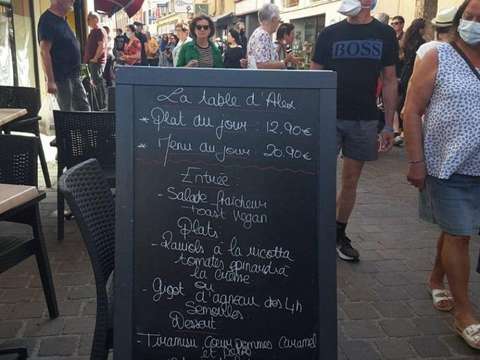 La table d'Alex
* Plat du jour : 12.90€
* Menu du jour : 20.90€
Entrée :
- Salade fraîcheur
toast vegan
Plats
- Raviolis à la ricotta
tomates épinards à
la crème
ou
- Gigot d'agneau des 4h
Semoules
Dessert
- Tiramisu Cœur pommes Caramel
BOSS